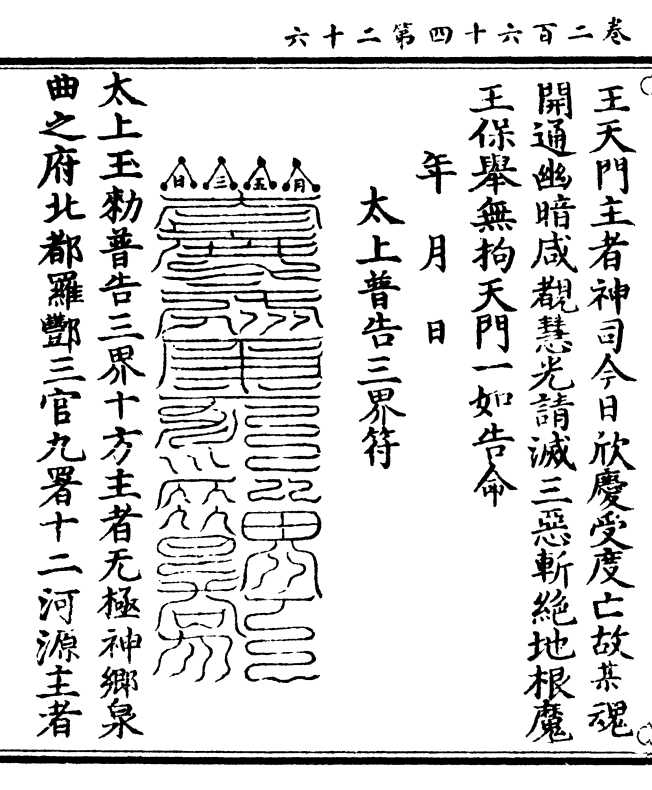 卷二百六十四第二十六
王天門主者神司今日欣慶受度亡故某魂
開通幽暗咸覩慧光請滅三惡斬絕地根魔
王保舉無拘天門一如告命
年月日
太上普告三界符
月五三日
太上玉勑普告三界十方主者无極神鄉泉
曲之府北都羅酆三官九署十二河源主者